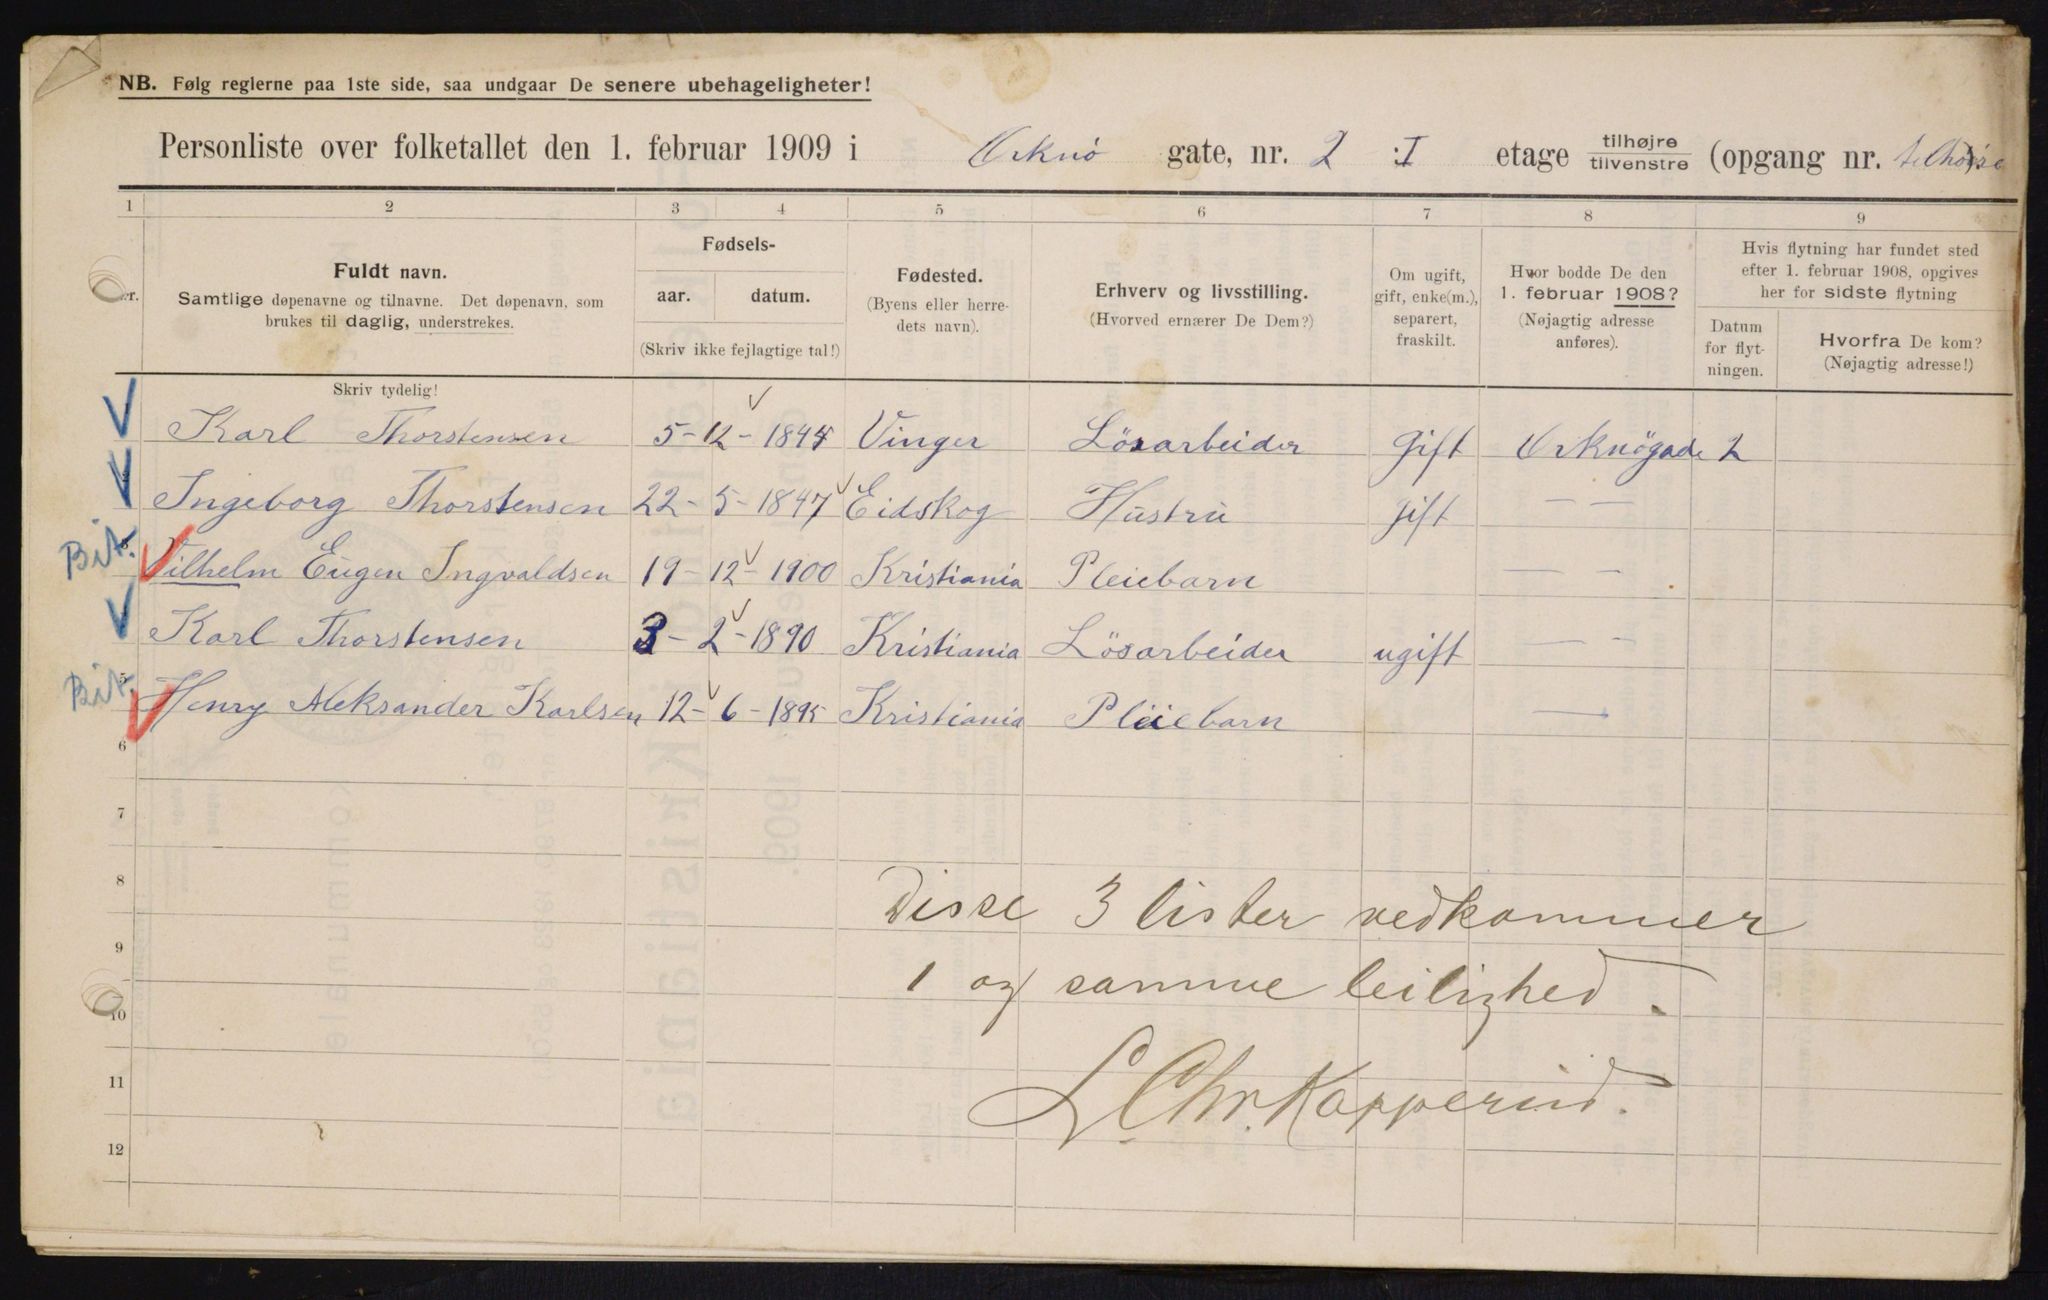 NB. Følg reglerne paa 1ste side, saa undgaar De senere ubehageligheter!
Personliste over folketallet den 1. februar 1909 i Orknö gate, nr. 2 :I etage tilhøjre tilvenstre (opgang nr. ).
1 2 3 4 5 6 7 8 9
Fuldt navn.
Samtlige døpenavne og tilnavne. Det døpenavn, som
brukes til daglig, understrekes.
Skriv tydelig!
Fødsels-
aar. datum.
(Skriv ikke fejlagtige tal!)
Fødested.
(Byens eller herre-
dets navn).
Erhverv og livsstilling.
(Hvorved ernærer De Dem?)
Om ugift,
gift, enke(m.),
separert,
fraskilt.
Hvor bodde De den
1. februar 1908?
(Nøjagtig adresse
anføres).
Hvis flytning har fundet sted
efter 1. februar 1908, opgives
her for sidste flytning
Datum
for flyt-
ningen.
Hvorfra De kom?
(Nøjagtig adresse!)
Karl Thorstensen 5-12-1844 Vinger Lösarbeider Gift Orknögade 2
Ingeborg Thorstensen 22-5-1847 Eidskog Hustru gift — —
Bit. Vilhelm Eugen Ingvaldsen 19-12-1900 Kristiania Pleiebarn — —
Karl Thorstensen 3-2-1890 Kristiania Lösarbeider ugift — —
5 Bit. Henry Aleksander Karlsen 12-6-1895 Kristiania Pleiebarn —
6
7
8
Disse 3 lister vedkommer
9
1 og samme leilighed.
10
L. Chr. Kopperud.
11
12